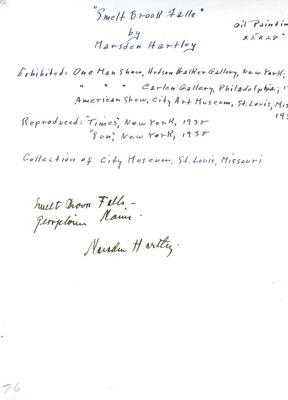 "Smelt Brook Falls"
by
Marsden Hartley
Oil Paintin
22" x 28"
Exhibited: One Man Show, Hudson Walker Gallery, New York;
" " " Carlen Gallery, Philadelphia; 1
American Show, City Art Museum, St. Louis, Mis
193
Reproduced: "Times," New York, 1938
"Sun," New York, 1938
Collection of City Museum, St. Louis, Missouri
Smelt Brook Falls -
Georgetown Maine.
Marsden Hartley.
76